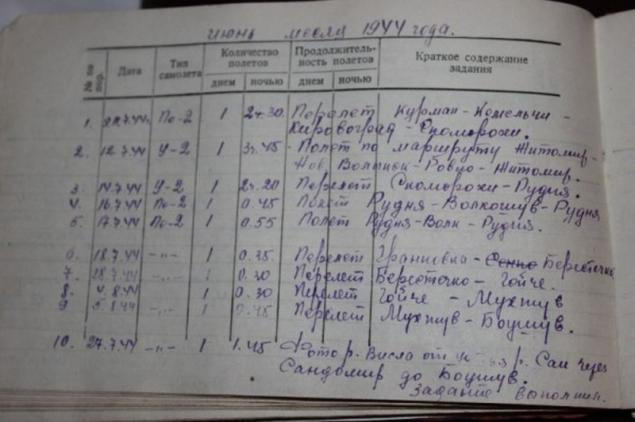 июнь месяц 1944 года.
№ по пор. Дата Тип самолета Количество полетов Продолжительность полетов Краткое содержание задания
днем ночью днем ночью
1. 7.44 По-2 1 2ч.30 Перелет Курман-Кемельчи-
Кировоград-Скоморохи.
2. 12.7.44 У-2 1 3ч.45 Полет по маршруту Житомир-
Нов. Волынск-Ровно-Житомир.
3. 14.7.44 У-2 1 2ч.20 Перелет Скоморохи-Рудня.
4. 16.7.44 По-2 1 0.45 Полет Рудня-Волкошув-Рудня
5. 17.7.44 По-2 1 0.55 Полет Рудня-Волк-Рудня.
6. 18.7.44 -"- 1 0.35 Перелет Грановка- Берсточко
7. 28.7.44 -"- 1 0.30 Перелет Берсточко-Гойче.
8. 4.8.44 1 0.30 Перелет Гойче-Мухпиув
9 8.44 -"- 1 0.45 Перелет Мухпиув-Боушув.
10. 27.7.44 -"- 1 1.45 Фото р. Висла от р. Сан через
Сандомир до Боушув.
Задание выполнил.